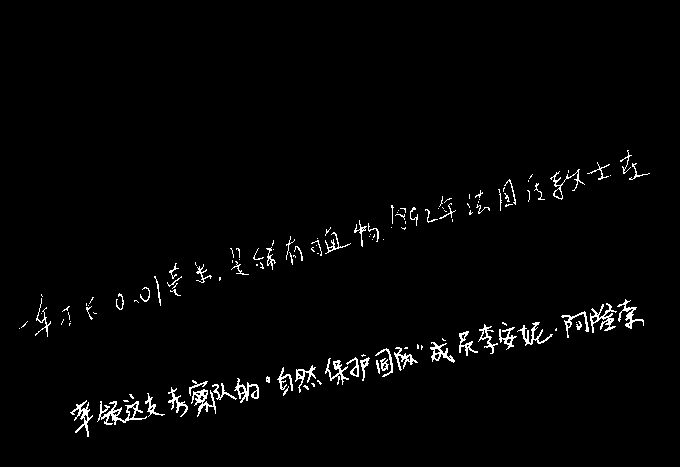 一年才长0.01毫米,是稀有植物,1892年法国传教士在
率领这支考察队的“自然保护团队”成员李安妮·阿隆索